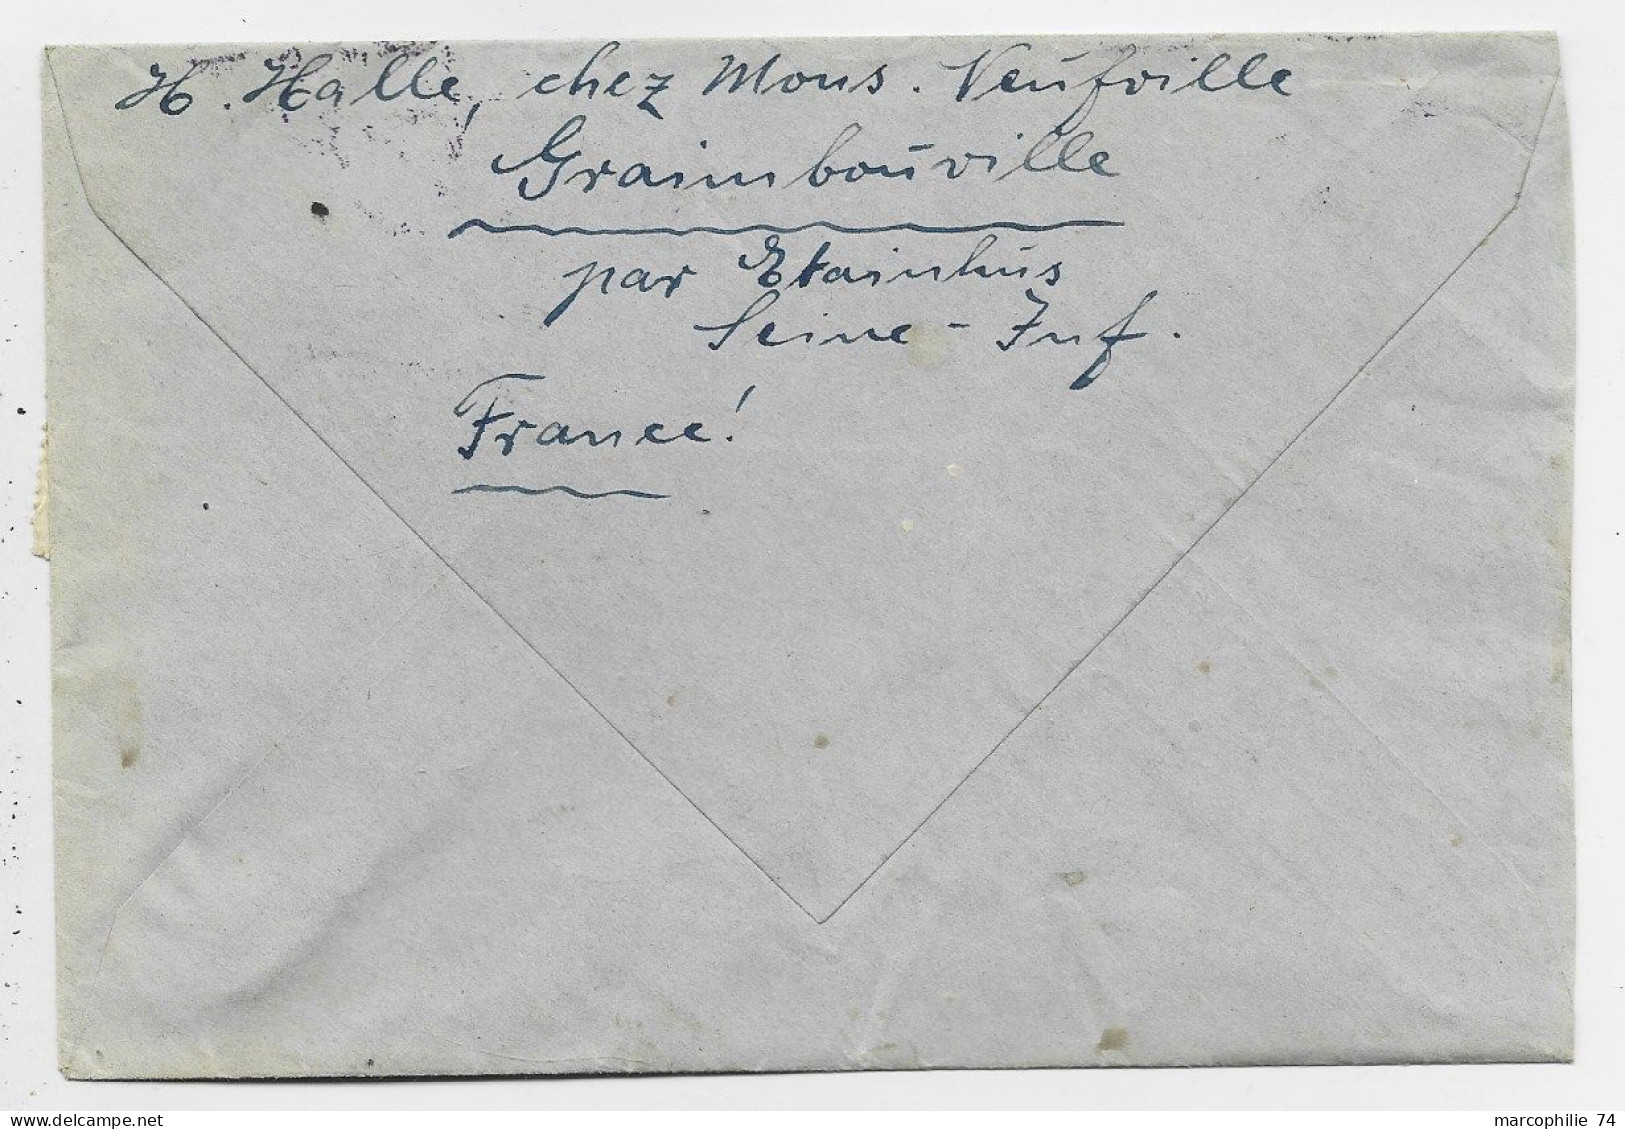 H. Halle, chez Mons. Neufville
Graimbouville
par Etainhus
Seine-Inf.
France!
marcophilie 74